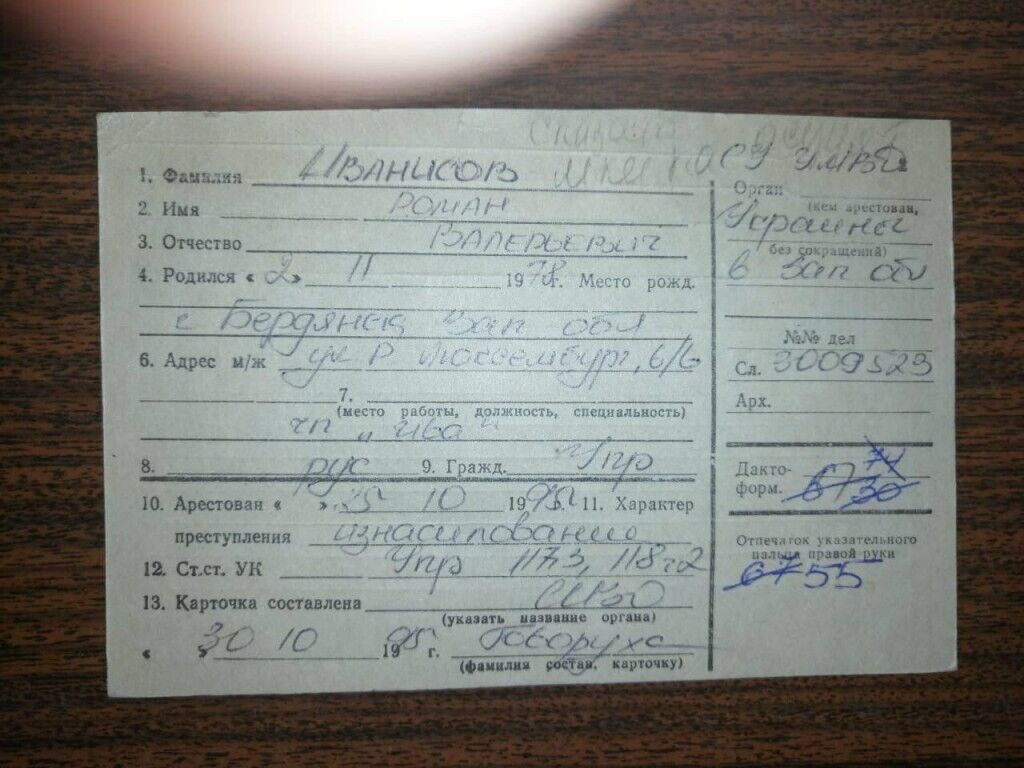 1. Фамилия Иванисов
2. Имя Роман
3. Отчество Валерьевич
4. Родился « 2 » 11 1978 г. Место рожд.
г Бердянск Зап обл
6. Адрес м/ж ул Р Люксембург, 6/6
7.
(место работы, должность, специальность)
чп „Ива"
8. рус 9. Гражд. Укр
10. Арестован « » 25 10 1995 г. 11. Характер
преступления изнасилование
12. Ст.ст. УК Укр 117ч3, 118ч2
13. Карточка составлена
(указать название органа)
« » 30 10 1995 г. Говоруха
(фамилия состав. карточку)
СУ УМВД
Орган
(кем арестован,
Украины
без сокращений)
в Зап обл
№№ дел
Сл. 3009523
Арх.
Дакто-
форм. 6730 74
Отпечаток указательного
пальца правой руки
6755